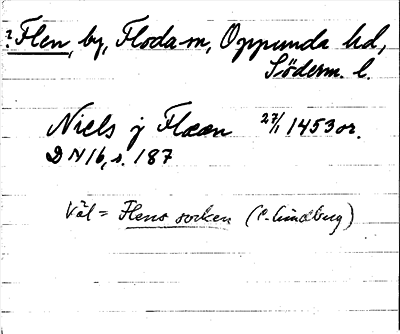 ? Flen, by, Floda sn, Oppunda hd,
Söderm. l.
Niels j Flææn 27/1 1453 or.
DN 16, s. 187
Väl = Flens socken (C. Lindberg)